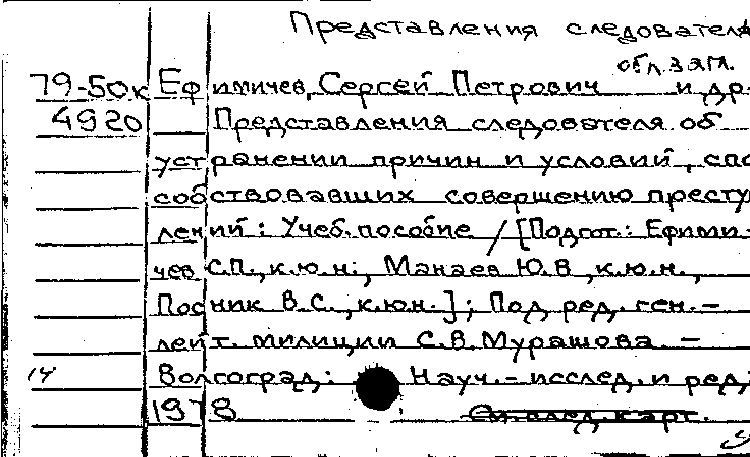 Представления следователя
обл. заг.
79-50к Ефимичев, Сергей Петрович и др.
4920 Представления следователя об
устранении причин и условий, спо
собствовавших совершению престу
лений: Учеб. пособие / [Подгот.: Ефими-
чев С.П., к.ю.н., Манаев Ю.В., к.ю.н.,
Посник В.С., к.ю.н.]; Под ред. ген.-
лейт. милиции С.В. Мурашова. -
14 Волгоград: Науч.-исслед. и ред.
1978
См. след. карт.